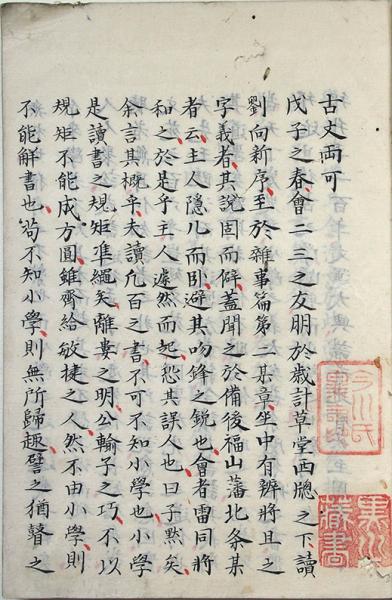 古史両可
戊子之春會二三之友朋於歳計草堂西牕之下讀
劉向新序至於雜事篇第二某章坐中有辨將且之
字義者其説固而僻蓋聞之於備後福山藩北条某
者云主人隠几而卧避其吻鋒之鋭也會者雷同將
和之於是乎主人遽然而起恐其誤人也曰子黙矣
余言其概乎夫讀凡百之書不可不知小學也小學
是讀書之規矩準繩矣離婁之明公輸子之巧不以
規矩不能成方圓雖齊給敏捷之人然不由小學則
不能解書也苟不知小學則無所歸趣譬之猶瞽之
黒川氏
圖書印
黒川
藏書